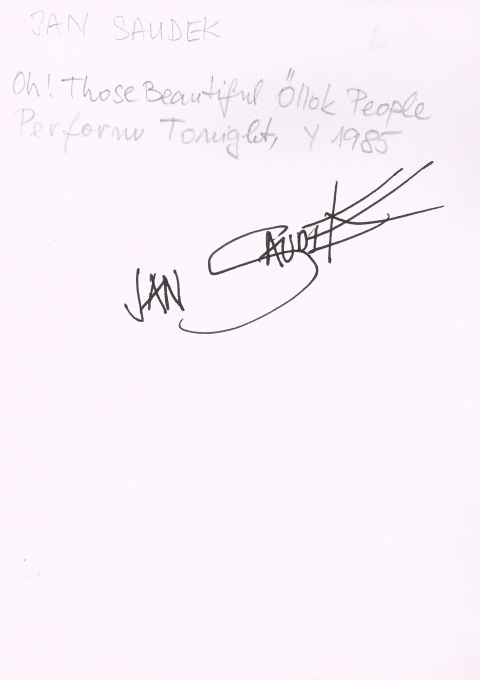 JAN SAUDEK
Oh! Those Beautiful Öllok People
Performe Tonight, Y 1985
JAN SAUDEK